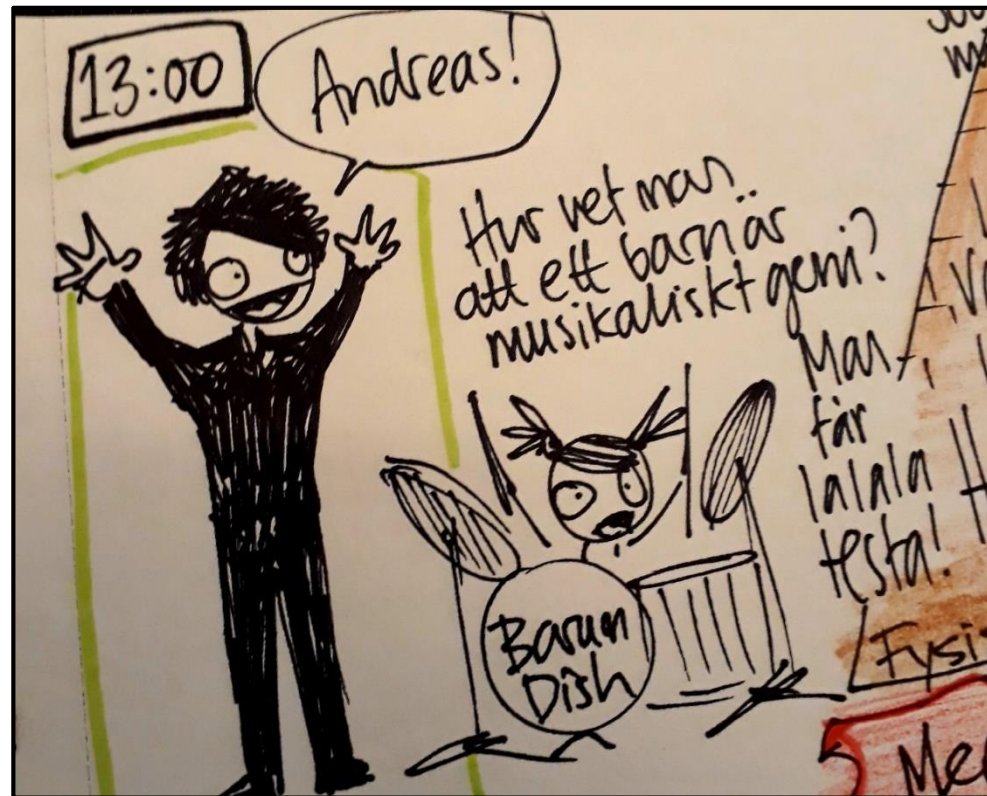 13:00
Andreas!
Hur vet man..
att ett barn är
musikaliskt geni?
Man
får
lalala
testa!
Barum
Dish
Fysi
Me